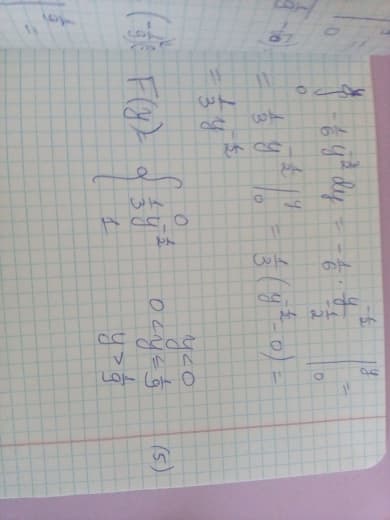 ∫₀^y -1/6 y^(-3/2) dy = -1/6 · y^(-1/2) / (-1/2) |₀^y =
= 1/3 y^(-1/2) |₀^y = 1/3 (y^(-1/2) - 0) =
= 1/3 y^(-1/2)
F(y) = { 0 y < 0
1/3 y^(-1/2) 0 < y ≤ 1/9
1 y > 1/9
(5)